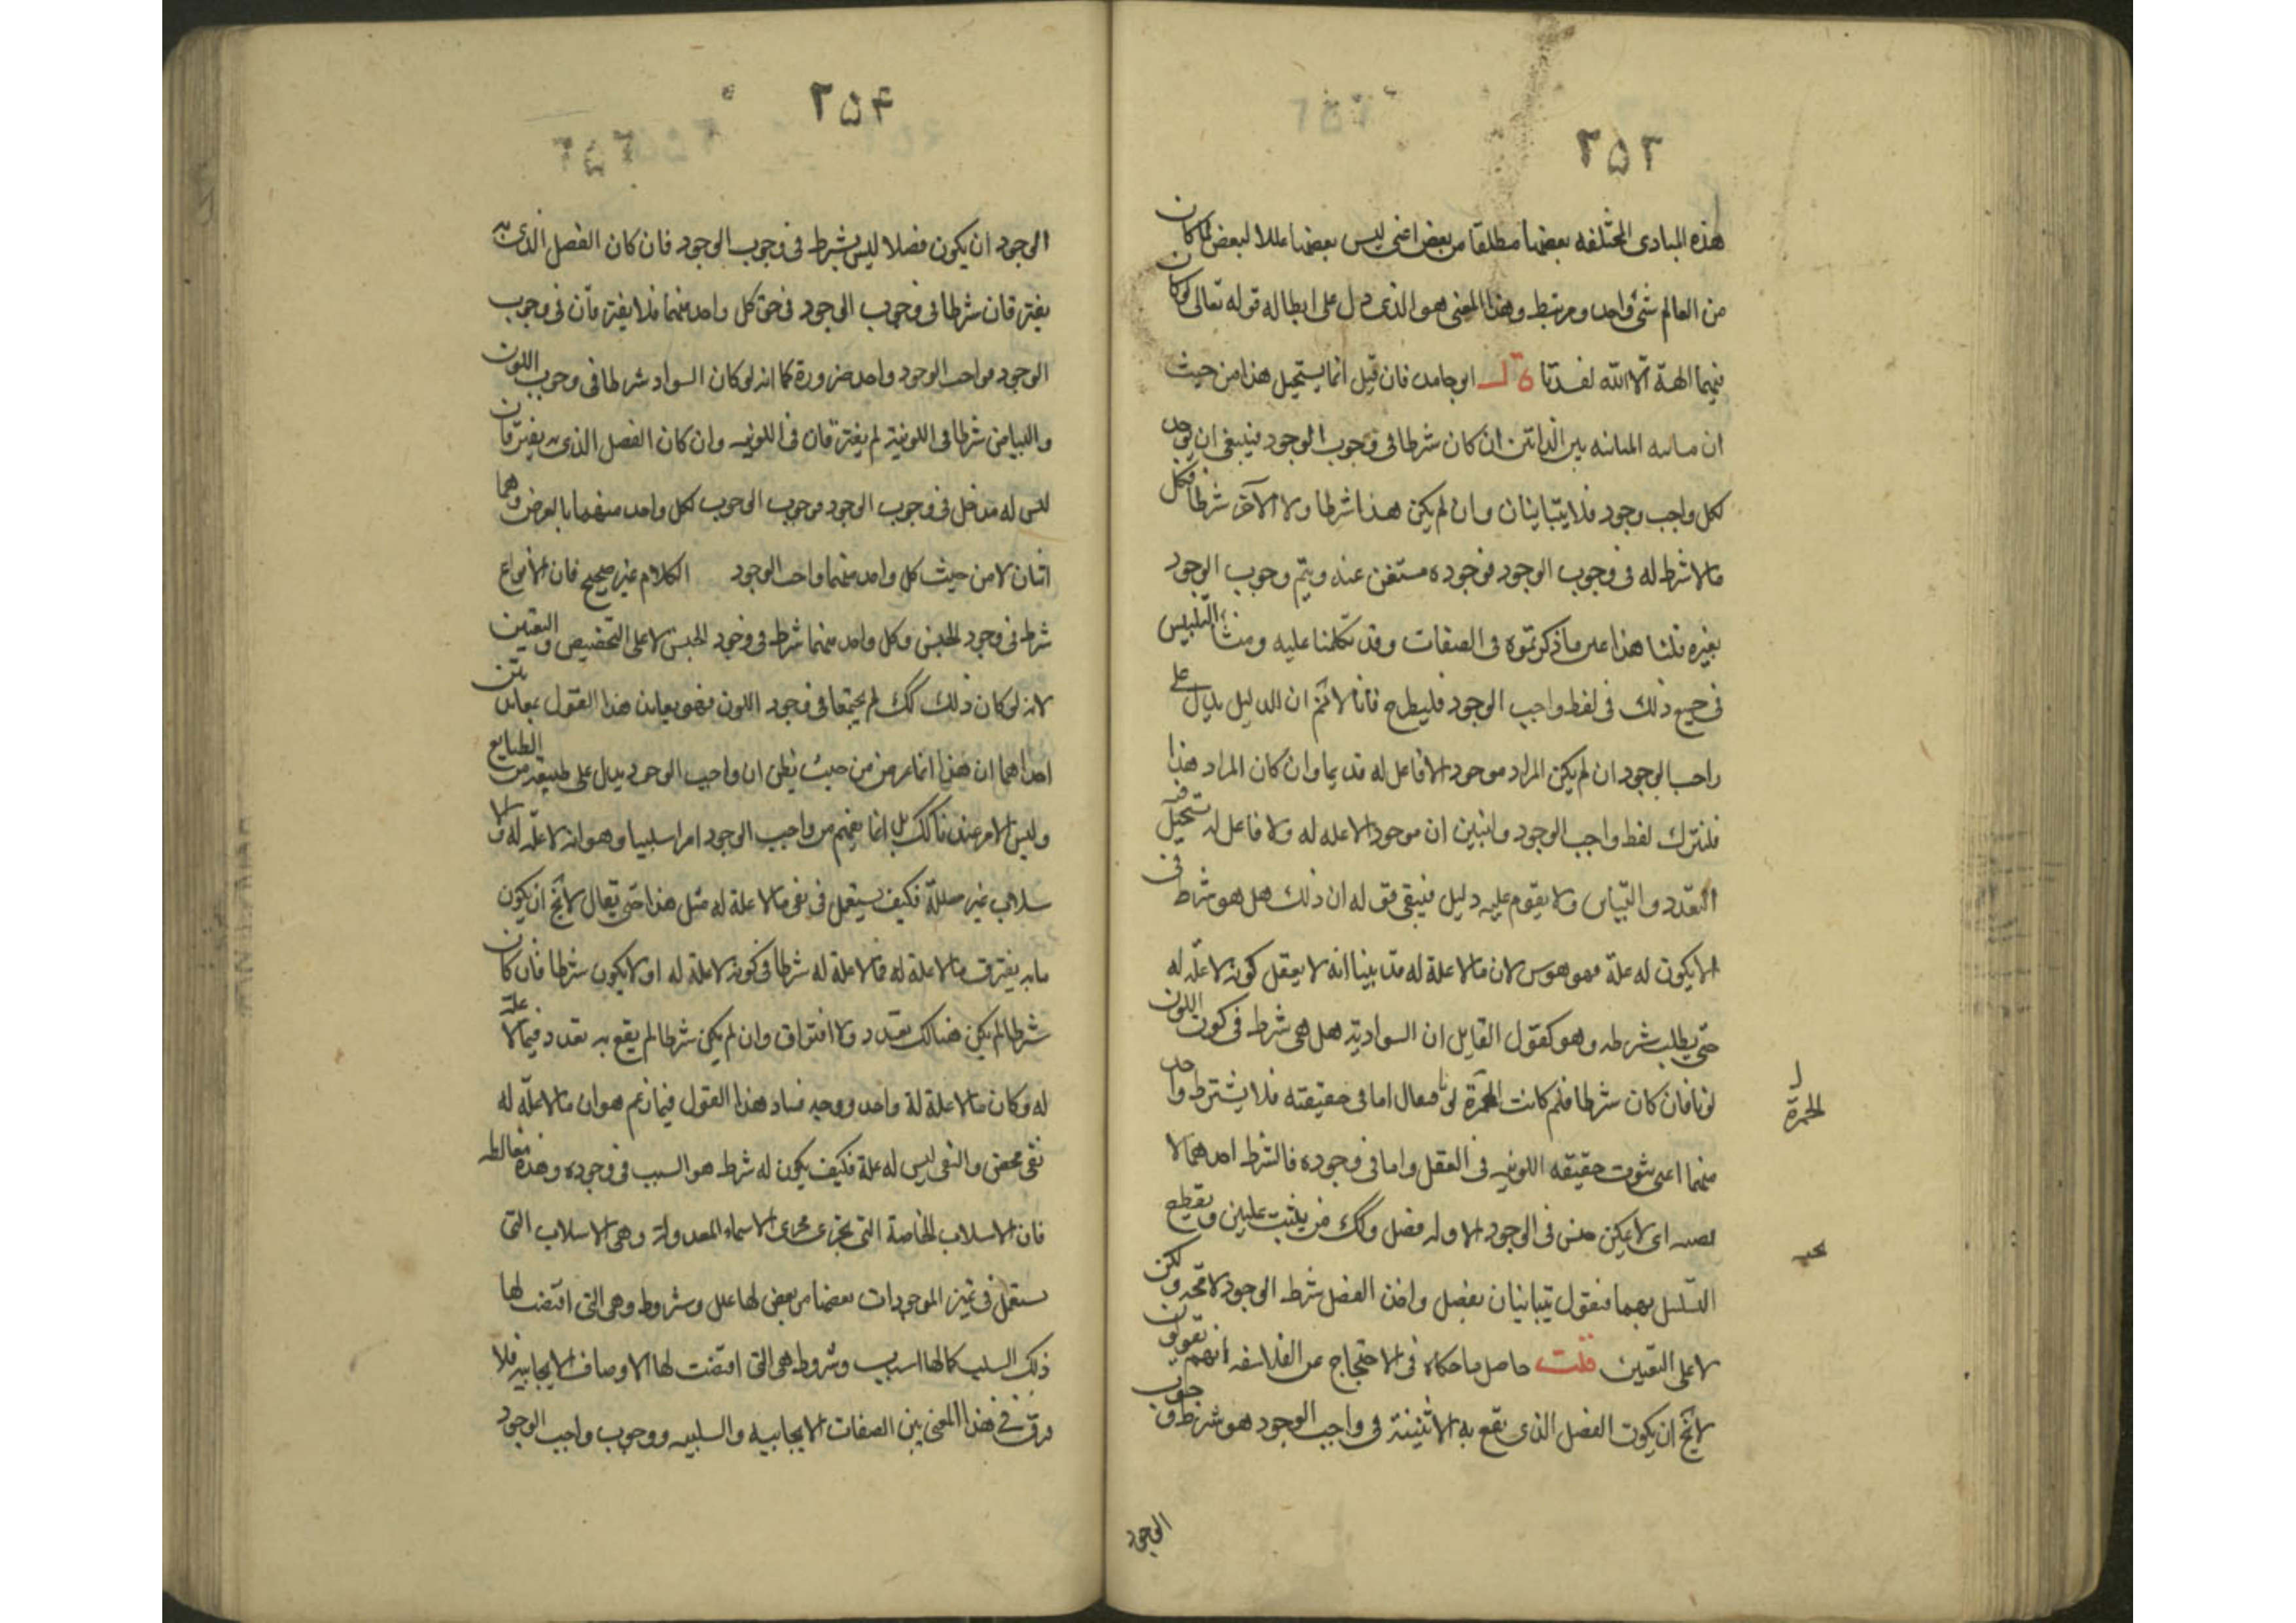 ٢٥٣
هذه المبادى المختلفه بعضها مطلقا من بعض اعنى ليس بعضها عللا لبعض لما كان
من العالم شئ واحد ومرتبط وهذا المعنى هو الذى دل على ابطاله قوله تعالى لو كان
فيهما الهة الا الله لفسدتا قال ابو حامد فان قيل انما يستحيل هذا من حيث
ان ما به المباينه بين الذاتين ان كان شرطا فى وجوب الوجود فينبغى ان يوجد
لكل واجب وجود فلا يتباينان وان لم يكن هذا شرطا ولا الآخر شرطا فكل
ما لا شرط له فى وجوب الوجود فوجوده مستغن عنه ويتم وجوب الوجود
بغيره قلنا هذا عين ما ذكرتموه فى الصفات وقد تكلمنا عليه ومنشأ التلبيس
فى جميع ذلك فى لفظ واجب الوجود فليطرح فانا لا نم ان الدليل يدل على
واجب الوجود ان لم يكن المراد موجود لا فاعل له قديما وان كان المراد هذا
فلنترك لفظ واجب الوجود ولنبين ان موجود لا علة له ولا فاعل له يستحيل فيه
التعدد والتباين ولا يقوم عليه دليل فيبقى قوله ان ذلك هل هو شرط فى
الا يكون له علة فهو هوس لان ما لا علة له قد بينا انه لا يعقل كونه لا علّه له
حتى يطلب شرطه وهو كقول القايل ان السوادية هل هى شرط فى كون اللون
لونا فان كان شرطا فلم كانت الحمرة لونا فيقال اما فى حقيقته فلا يشترط واحد
منهما اعنى ثبوت حقيقه اللونيه فى العقل واما فى وجوده فالشرط احدهما لا
بعينه اى لا يمكن جنس فى الوجود الا وله فصل وكك من يثبت علتين ويقطع
التسلسل بهما فنقول يتباينان بفصل واحد الفصل شرط الوجود لا محة ولكن
لا على التعيين قلت حاصل ما حكاه فى الاحتجاج عن الفلاسفه انهم يقولون
لا يخ ان يكون الفصل الذى يقع به الاثنينية فى واجب الوجود هو شرط فى وجوب
الوجود
الحمرة
٢٥٤
الوجود ان يكون فصلا ليس بشرط فى وجوب الوجود فان كان الفصل الذى به
يفترقان شرطا فى وجوب الوجود فى حق كل واحد منهما فلا يفترقان فى وجوب
الوجود فواجب الوجود واحد ضرورة كما انه لو كان السواد شرطا فى وجوب اللون
والبياض شرطا فى اللونية لم يفترقان فى اللونيه وان كان الفصل الذى به يفترقان
ليس له مدخل فى وجوب الوجود فوجوب الوجوب لكل واحد منهما بالعرض وهما
اثنان لا من حيث كل واحد منهما واجب الوجود الكلام غير صحيح فان الانواع
شرط فى وجود الجنس وكل واحد منهما شرط فى وجود الجنس لا على التخصيص والتعيين
لانه لو كان ذلك كك لم يجتمعا فى وجود اللون فهو يعاند هذا القول بعنادين
احداهما ان هذا انما عرض من حيث يظن ان واجب الوجود يدل على طبيعة من الطبايع
وليس الامر عندنا كك بل انما يفهم من واجب الوجود امرا سلبيا وهو انه لا علّه له والا
سلاب غير معللة فكيف يستعمل فى نفى ما لا علة له مثل هذا حتى يقال لا يخ ان يكون
ما به يفترق ما لا علة له فما لا علة له شرطا فى كونه لا علة له او لا يكون شرطا فان كان
شرطا لم يكن هنالك تعدد ولا افتراق وان لم يكن شرطا لم يقع به تعدد فيما لا علة
له وكان ما لا علة له واحد ووجه فساد هذا القول فيما زعم هو ان ما لا علّه له
نفى محض والنفى ليس له علة فكيف يكون له شرط هو السبب فى وجوده وهذه مغالطه
فان الاسلاب الخاصة التى تجرى مجرى الاسماء المعدولة وهى الاسلاب التى
يستعمل فى تميز الموجودات بعضها من بعض لها علل وشروط وهى التى اقتضت لها
ذلك السلب كما لها اسباب وشروط هى التى اقتضت لها الاوصاف الايجابيه فلا
فرق فى هذا المعنى بين الصفات الايجابيه والسلبيه ووجوب واجب الوجود